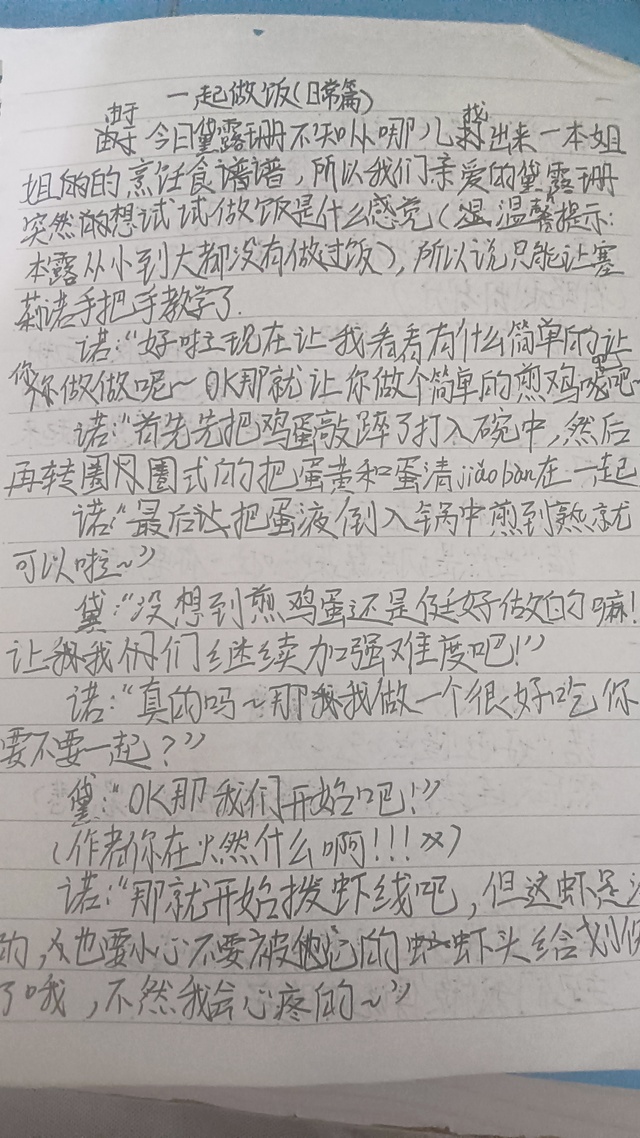 一起做饭(日常篇)
由于今日黛露珊不知从哪儿找出来一本姐
姐的的烹饪食谱谱，所以我们亲爱的黛露珊
突然的想试试做饭是什么感觉(温温馨提示:
本露从小到大都没有做过饭),所以说只能让塞
莉诺手把手教学了.
诺:“好啦现在让我看看有什么简单的让
你你做做呢~OK那就让你做个简单的煎鸡蛋吧~
诺:“首先先把鸡蛋敲碎了打入碗中,然后
再转圈圈式的把蛋黄和蛋清jiǎo bàn在一起
诺“最后让把蛋液倒入锅中煎到熟就
可以啦~”
黛:“没想到煎鸡蛋还是挺好做的嘛!
让我我们们继续加强难度吧!”
诺:“真的吗~那我我做一个很好吃你
要不要一起?”
黛:“OK那我们开始吧!”
(作者你在火然什么啊!!!x)
诺:“那就开始拨虾线吧,但这虾是
的,也要小心不要被他它的虾虾头给划伤
了哦,不然我会心疼的~”